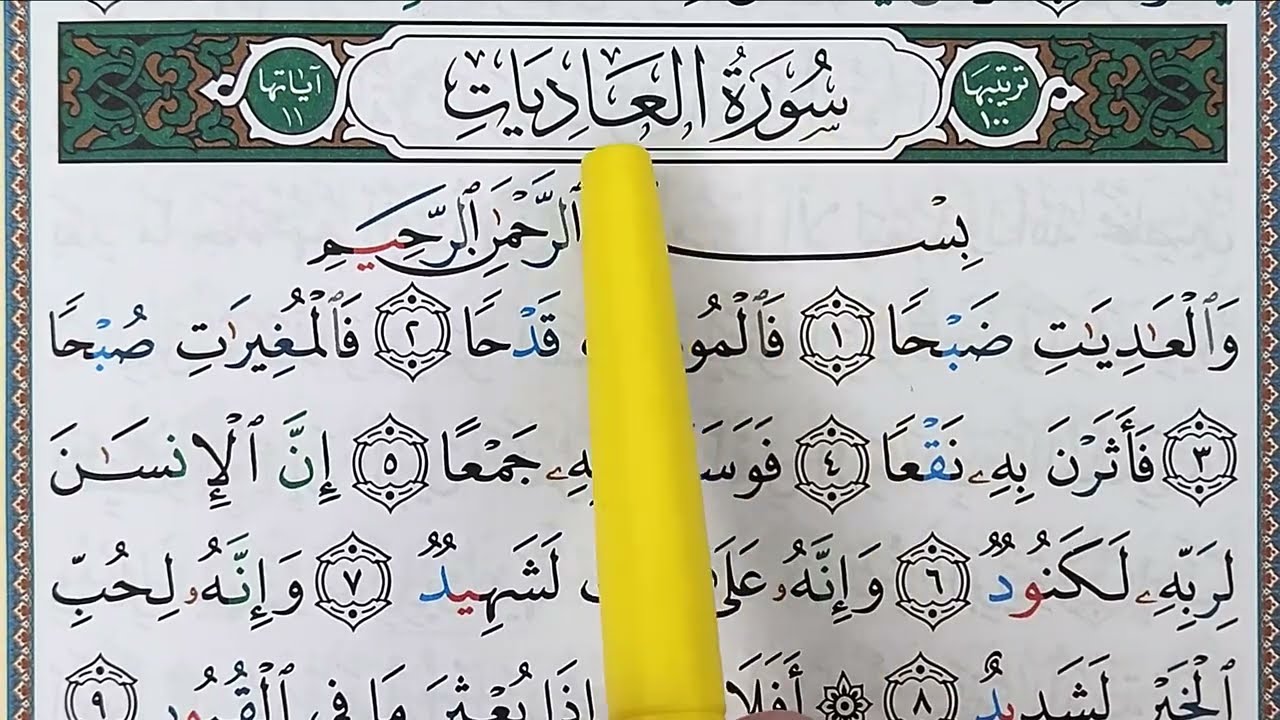 ترتيبها ١٠٠
سُورَةُ العَادِيَاتِ
آيَاتها ١١
بِسْـ ٱلرَّحْمَٰنِ ٱلرَّحِيمِ
وَٱلْعَٰدِيَٰتِ ضَبْحًا ١ فَٱلْمُو قَدْحًا ٢ فَٱلْمُغِيرَٰتِ صُبْحًا
٣ فَأَثَرْنَ بِهِۦ نَقْعًا ٤ فَوَسَـ بِهِۦ جَمْعًا ٥ إِنَّ ٱلْإِنسَٰنَ
لِرَبِّهِۦ لَكَنُودٌ ٦ وَإِنَّهُۥ عَلَىٰ لَشَهِيدٌ ٧ وَإِنَّهُۥ لِحُبِّ
ٱلْخَيْرِ لَشَدِيدٌ ٨ ۞ أَفَلَا إِذَا بُعْثِرَ مَا فِي ٱلْقُبُورِ ٩